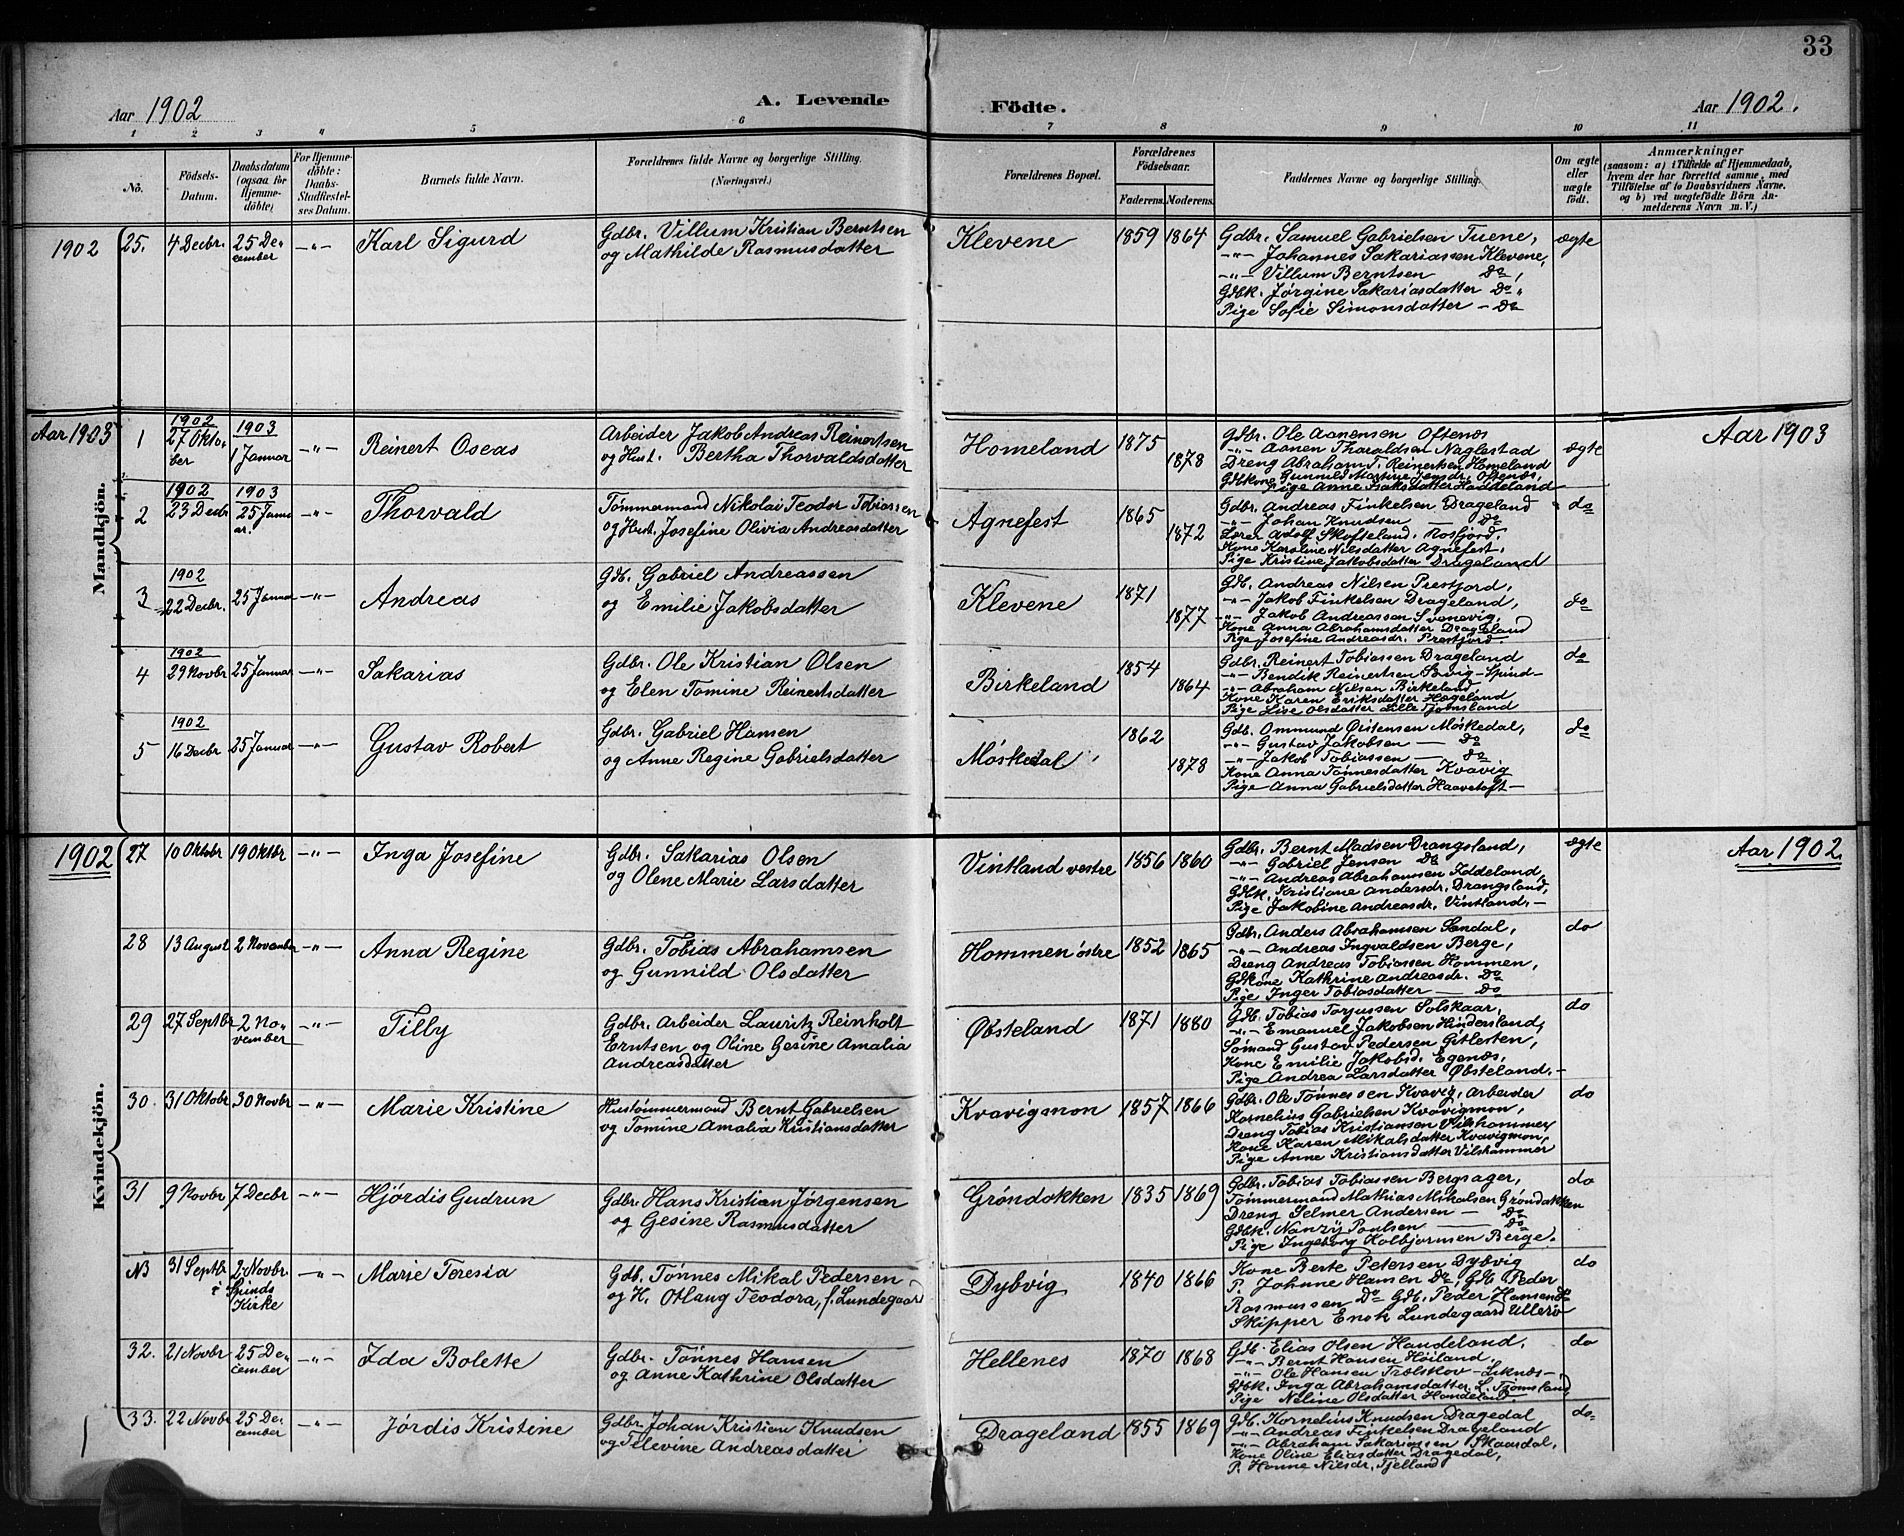 33
Aar 1902
A. Levende Födte.
Aar 1902.
1 2 3 4 5 6 7 8 9 10 11
No.
Födsels-Datum.
Daabsdatum (ogsaa for Hjemmedöbte)
For Hjemmedöbte: Daabs-Stadfæstelses Datum.
Barnets fulde Navn.
Forældrenes fulde Navne og borgerlige Stilling. (Næringsvei.)
Forældrenes Bopæl.
Forældrenes Födselsaar.
Faderens. Moderens.
Faddernes Navne og borgerlige Stilling.
Om ægte eller uægte födt.
Anmærkninger
(saasom: a) i Tilfælde af Hjemmedaab, hvem der har forrettet samme, med Tilföielse af to Daabsvidners Navne. og b) ved uægtefödte Börn Anmelderens Navn m. V.)
1902
25. 4 Decbr. 25 December -"- Karl Sigurd
Gdbr. Villum Kristian Berntsen
og Mathilde Rasmusdatter
Klevene 1859 1864
Gdbr. Samuel Gabrielsen Tuene,
-"- Johannes Sakariassen Klevene,
-"- Villum Berntsen do,
Gdbk. Jørgine Sakariasdatter do,
Pige Sofie Simonsdatter - do
ægte
Aar 1903
Aar 1903
Mandkjön.
1 1902 27 Oktober 1903 1 Januar -"- Reinert Oseas
Arbeider Jakob Andreas Reinertsen
og Hust. Bertha Thorvaldsdatter
Homeland 1875 1878
Gdbr. Ole Aanensen Oftenæs
-"- Aanen Tharaldsen Naglestad
Dreng Abraham T. Reinertsen Homeland
Gdbkone Gunnild Martine Jensdr. Oftenæs,
Pige Anne Isaksdatter Haddeland
ægte
2 1902 23 Decbr 1903 25 Januar. -"- Thorvald
Tømmermand Nikolai Teodor Tobiassen
og Hust. Josefine Olivia Andreasdatter
Agnefest 1865 1872
Gdbr. Andreas Finkelsen Drageland
-"- Johan Knudsen — do
Adolf Skofteland, Rosfjord,
Kone Karoline Nilsdatter Agnefest,
Pige Kristine Jakobsdatter Drageland
do
3 1902 22 Decbr. 25 Januar -"- Andreas
Gdb. Gabriel Andreassen
og Emilie Jakobsdatter
Klevene 1871 1877
Gdb. Andreas Nilsen Presfjord,
-"- Jakob Finkelsen Drageland,
-"- Jakob Andreassen Svenevig,
Kone Anna Abrahamsdatter Drageland
Pige Josefine Andreasdr. Presfjord
do
4 1902 29 Novbr 25 Januar -"- Sakarias
Gdbr. Ole Kristian Olsen
og Elen Tomine Reinertsdatter
Birkeland 1854 1864
Gdbr. Reinert Tobiassen Drageland
-"- Bendik Reinertsen Søvig-Spind-
-"- Abraham Nilsen Birkeland
Kone Karen Eriksdatter Hægeland
Pige Lise Olsdatter Lille Tjømsland
do
5 1902 16 Decbr 25 Januar -"- Gustav Robert
Gdbr. Gabriel Hansen
og Anne Regine Gabrielsdatter
Møskedal 1862 1878
Gdb. Ommund Øistensen Møskedal,
-"- Gustav Jakobsen — do
-"- Jakob Tobiassen — do
Kone Anna Tønnesdatter Kvavig
Pige Anna Gabrielsdatter Haavetoft-
do
1902
Aar 1902
Kvindekjön.
27 10 Oktobr 19 Oktbr -"- Inga Josefine
Gdbr. Sakarias Olsen
og Olene Marie Larsdatter
Vintland vestre 1856 1860
Gdbr. Bernt Madsen Drangsland,
-"- Gabriel Jensen do
-"- Andreas Abrahamsen Eddeland,
Gdbk. Kristiane Andersdr. Drangsland,
Pige Jakobine Andreasdr. Vintland.-
ægte
28 13 August 2 November -"- Anna Regine
Gdbr. Tobias Abrahamsen
og Gunnild Olsdatter
Hommen østre 1852 1865
Gdbr. Anders Abrahamsen Landal,
-"- Andreas Ingvaldsen Berge,
Dreng Andreas Tobiassen Hommen,
Gdkone Kathrine Andreasdr. do
Pige Inger Tobiasdatter — do
do
29 27 Septbr 2 November -"- Tilly
Gdbr. Arbeider Lauritz Reinholt
Erntsen og Oline Gesine Amalia
Andreasdatter
Øbsteland 1871 1880
Gdb. Tobias Torjussen Solskaar,
-"- Emanuel Jakobsen Hindersland,
Sømand Gustav Pedersen Gitlesten,
Kone Emilie Jakobsd. Egenæs,
Pige Andrea Larsdatter Øbsteland.-
do
30. 31 Oktobr 30 Novbr -"- Marie Kristine
Hustømmermand Bernt Gabrielsen
og Tomine Amalia Kristiansdatter
Kvavigmon 1857 1866
Gdbr. Ole Tønnessen Kvavig, Arbeider
Kornelius Gabrielsen Kvavigmon,
Dreng Tobias Kristiansen Vilshammer
Kone Karen Mikalsdatter Kvavigmon,
Pige Anne Kristiansdatter Vilshammer
do
31 9 Novbr 7 Decbr -"- Hjørdis Gudrun
Gdbr. Hans Kristian Jørgensen
og Gesine Rasmusdatter
Grøndokken 1835 1869
Gdbr. Tobias Tobiassen Bergsager,
Tømmermand Mathias Mikalsen Grøndokken
Dreng Selmer Andersen — do
Gdbk. Nanzy Poulsen — do
Pige Ingeborg Kolbjørnsen Berge.
do
NB 31 Septbr 2 Novbr. i Spinds Kirke -"- Marie Teresia
Gdb. Tønnes Mikal Pedersen
og H. Otlaug Teodora, f. Lundegaard
Dybvig 1840 1866
Kone Berte Petersen Dybvig
P. Johnne Hansen do, Gdb Peder
Rasmussen do Gdb. Peder Hansen do
Skipper Enok Lundegaard Ullerø
do
32. 21 Novbr 25 December -"- Ida Bolette
Gdbr. Tønnes Hansen
og Anne Kathrine Olsdatter
Hellenes 1870 1868
Gdb. Elias Olsen Haudeland,
-"- Bernt Hansen Høiland,
-"- Ole Hansen Trælskov-Liknæs-,
Gdbk. Inga Abrahamsdatter L. Tjømsland
Pige Neline Olsdatter Haudeland
do
33. 22 Novbr 25 December -"- Jørdis Kristine
Gdbr. Johan Kristian Knudsen
og Televine Andreasdatter
Drageland 1855 1869
Gdb. Kornelius Knudsen Dragedal
-"- Andreas Finkelsen Drageland
-"- Abraham Sakariassen Skaardal,
Kone Oline Eliasdatter Dragedal,
P. Hanne Nilsdr. Tjelland
do-